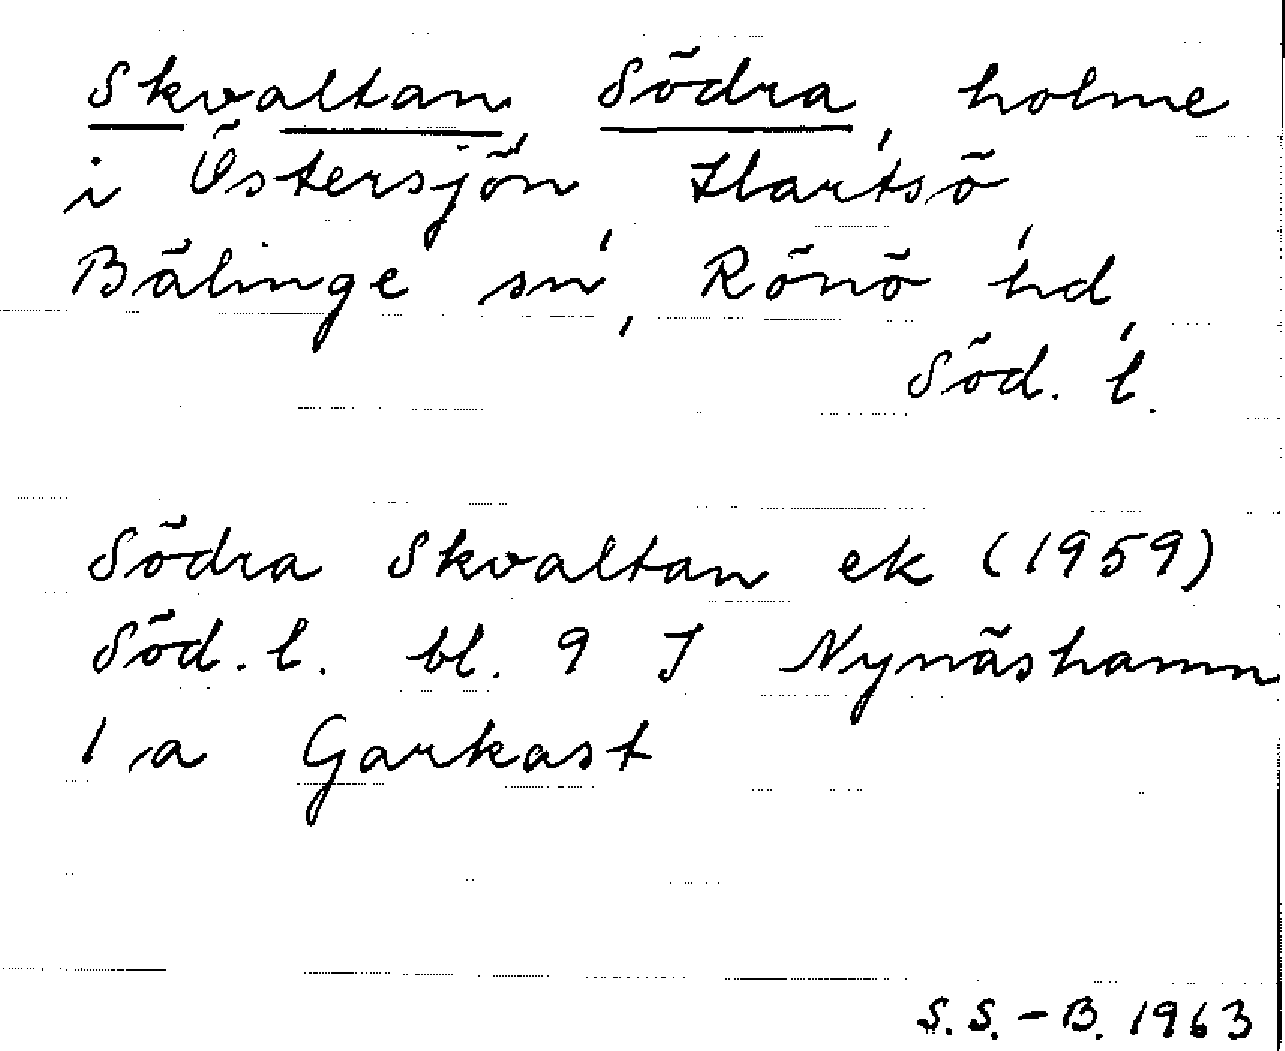 Skvaltan, Södra, holme
i Östersjön, Hartsö,
Bälinge sn, Rönö hd,
Söd. l.
Södra Skvaltan ek (1959)
Söd. l. bl. 9 I Nynäshamn
1 a Garkast
S. S. - B. 1963